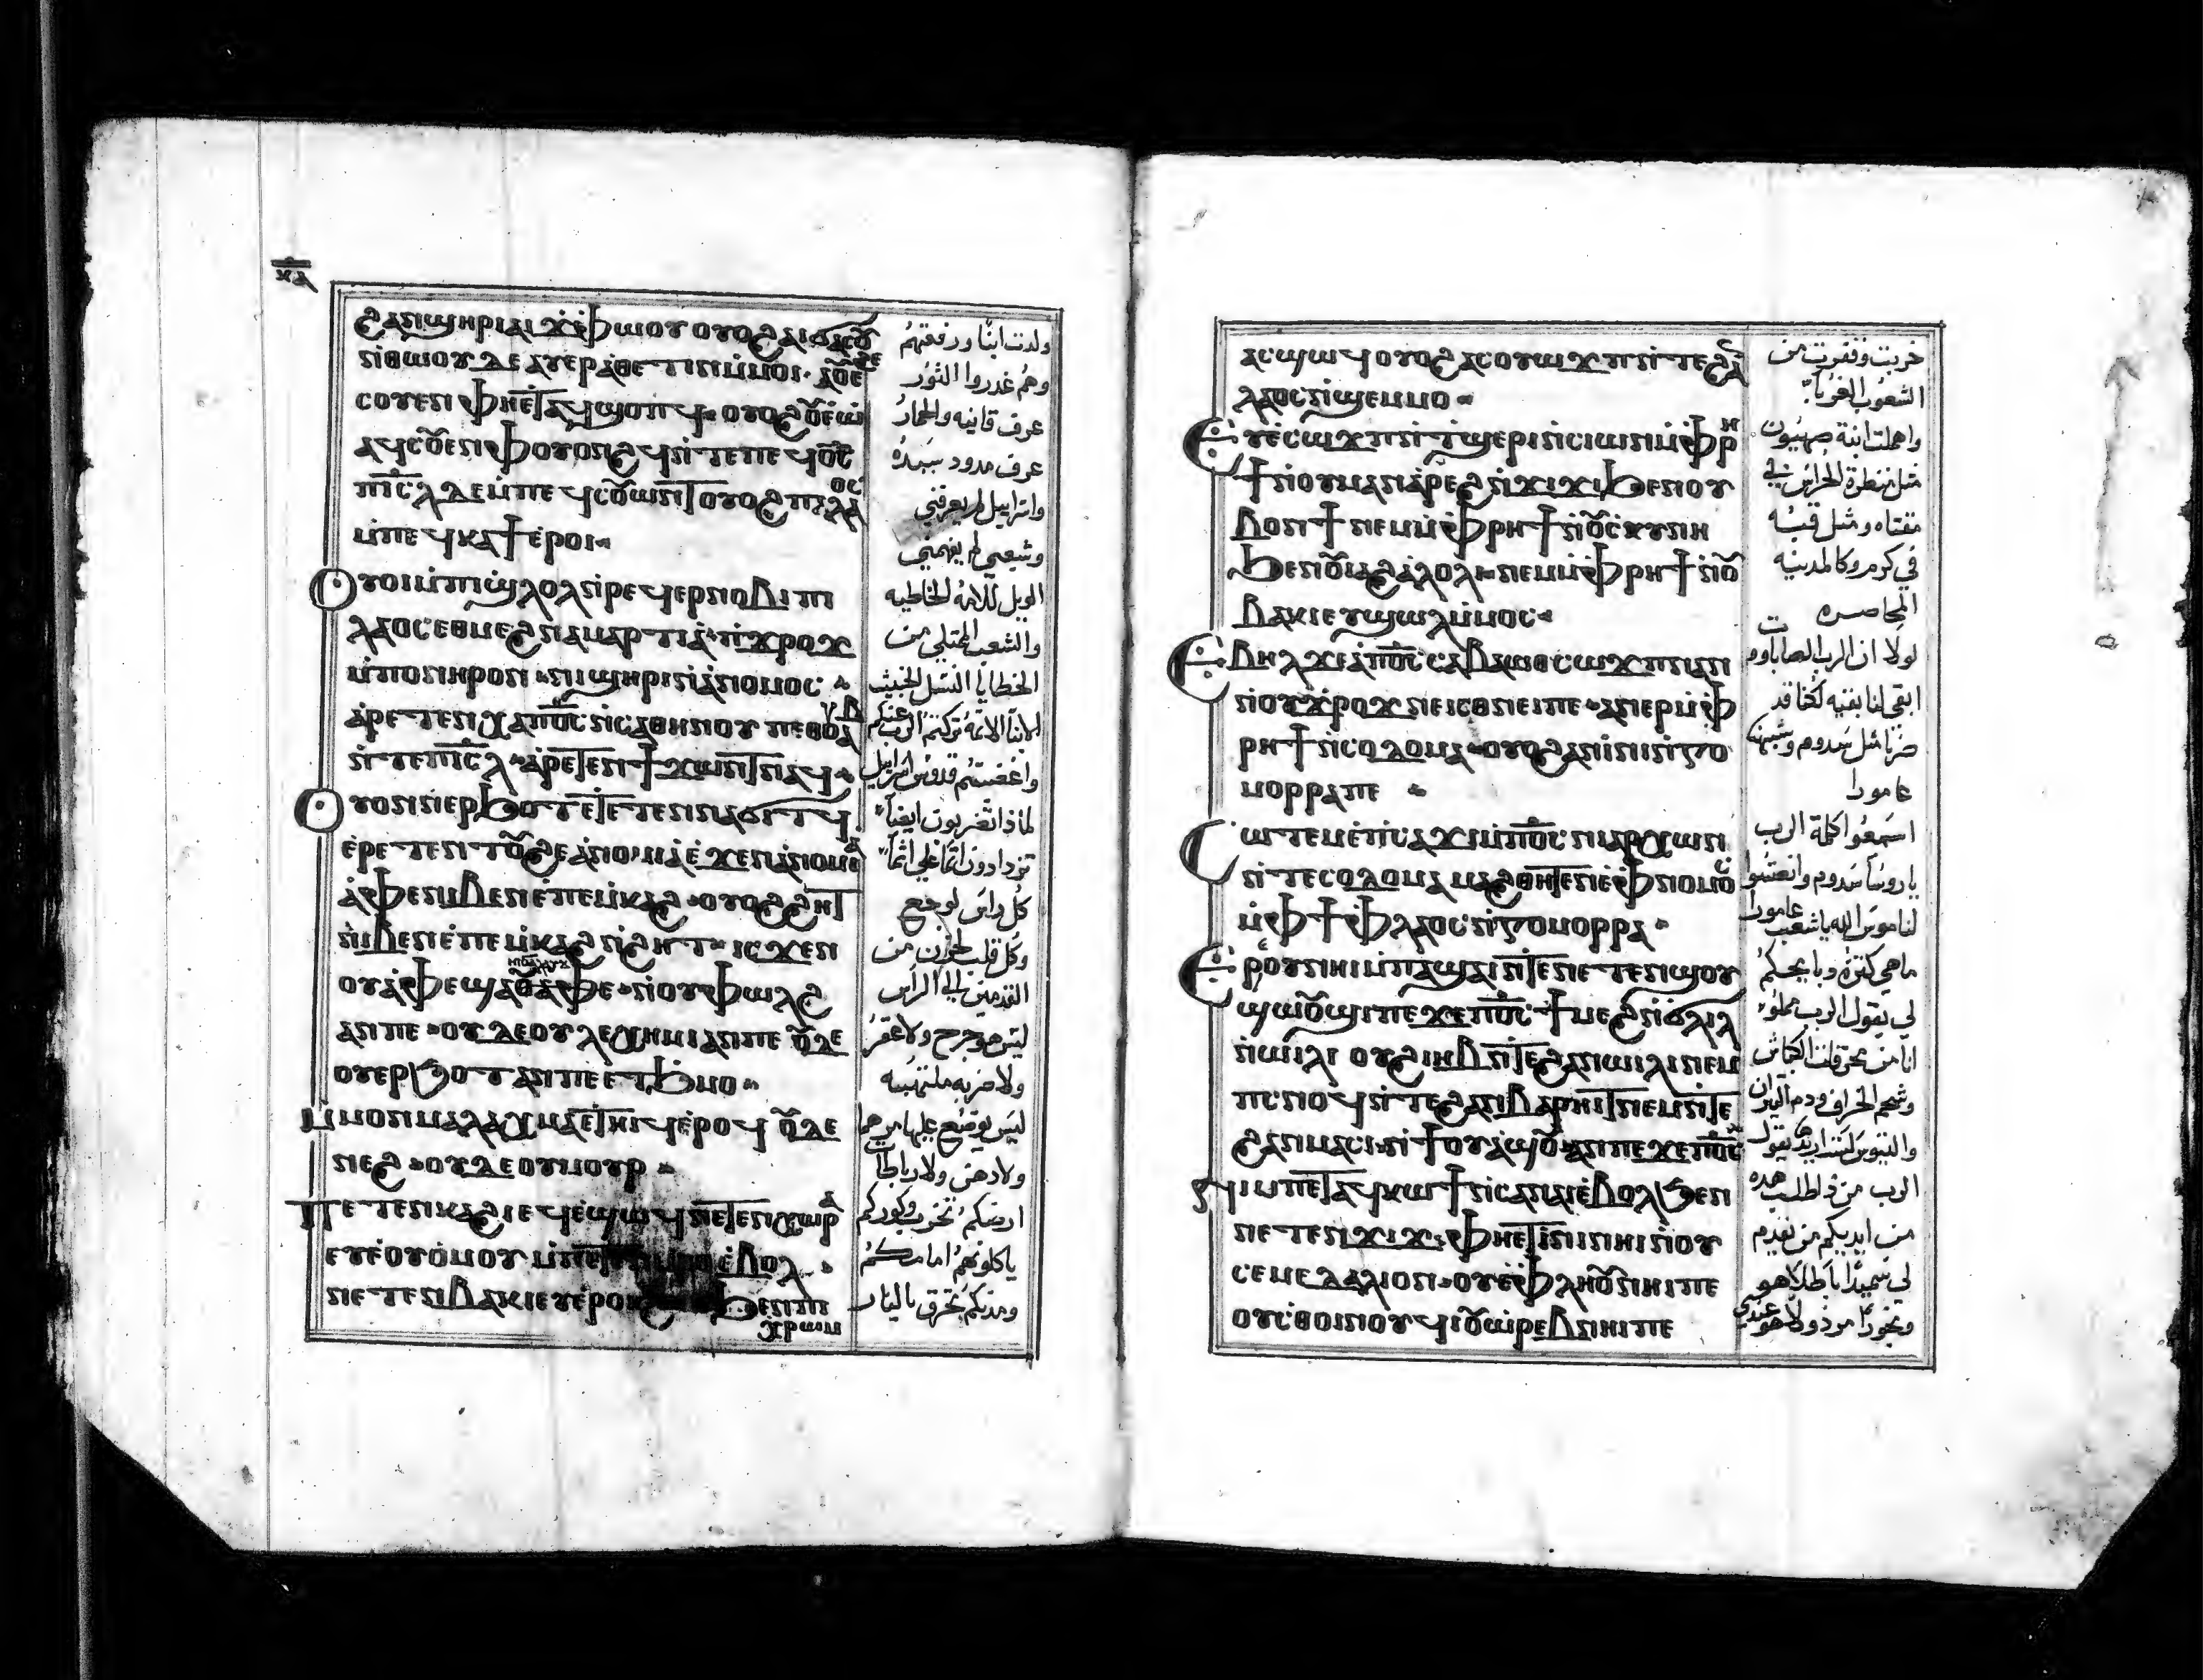 ϩⲁⲛϣⲏⲣⲓ ⲁⲓϫ̀ⲫⲱⲟⲩ ⲟⲩⲟϩ ⲁⲓϭⲁⲥⲟⲩ
ⲛ̀ⲑⲱⲟⲩ ⲇⲉ ⲁⲩⲉⲣⲁⲑⲉⲧⲓⲛ ⲙ̀ⲙⲟⲓ· ⲁⲟⲩⲉϩⲉ
ⲥⲟⲩⲉⲛ ⲫⲏⲉⲧⲁϥϣⲟⲡϥ ⲟⲩⲟϩ ⲟⲩⲉ̀ⲱ̀
ⲁϥⲥⲟⲩⲉⲛ ⲫⲟⲩⲟⲛϩϥ ⲛ̀ⲧⲉ ⲡⲉϥⲟ̅ⲥ̅
ⲡⲓⲥ̅ⲗ ⲇⲉ ⲙ̀ⲡⲉϥⲥⲟⲩⲱⲛⲧ ⲟⲩⲟϩ ⲡⲁⲗⲁⲟⲥ
ⲙ̀ⲡⲉϥⲕⲁϯ ⲉ̀ⲣⲟⲓ
ⲟⲩⲟⲓ ⲙ̀ⲡⲓϣⲗⲟⲗ ⲛ̀ⲣⲉϥⲉⲣⲛⲟⲃⲓ ⲡⲓ
ⲗⲁⲟⲥ ⲉⲑⲙⲉϩ ⲛⲁⲙⲁⲣⲧⲓⲁ ⲡⲓϫⲣⲟϫ
ⲙ̀ⲡⲟⲛⲏⲣⲟⲛ ⲛⲓϣⲏⲣⲓ ⲛ̀ⲁⲛⲟⲙⲟⲥ
ⲁ̀ⲣⲉⲧⲉⲛⲭⲁ ⲡⲟ̅ⲥ̅ ⲛ̀ⲥⲁⲑⲏⲛⲟⲩ ⲡⲉⲑⲟⲩⲁⲃ
ⲛ̀ⲧⲉ ⲡⲓⲥ̅ⲗ ⲁ̀ⲣⲉⲧⲉⲛϯϫⲱⲛⲧ ⲛⲁϥ
ⲟⲩⲟⲛ ⲛ̀ⲉⲣϧⲟⲧ ⲉⲧⲉⲧⲉⲛⲛⲁϭⲓⲧϥ
ⲉ̀ⲣⲉⲧⲉⲛⲧⲟⲩϩⲉ ⲁ̀ⲛⲟⲙⲓⲁ ⲉ̀ϫⲉⲛ ⲁ̀ⲛⲟⲙⲓⲁ
ⲁ̀ⲫⲉ ⲛⲓⲃⲉⲛ ⲉ̀ⲡⲉⲙⲕⲁϩ ⲟⲩⲟϩ ϩⲏⲧ
ⲛⲓⲃⲉⲛ ⲉ̀ⲡⲉⲙⲕⲁϩ ⲛ̀ϩⲏⲧ ⲓⲥϫⲉⲛ
ⲟⲩⲁ̀ⲫⲉ ϣⲁ ⲟⲩⲁ̀ⲫⲉ ⲛ̀ⲟⲩⲫⲱⲗϩ
ⲁⲛ ⲡⲉ ⲟⲩⲇⲉ ⲟⲩⲗⲉⲭⲏⲙⲓ ⲁⲛ ⲡⲉ ⲟⲩⲇⲉ
ⲟⲩⲉⲣϧⲟⲧ ⲁⲛ ⲡⲉ ⲉⲧϧⲙⲟ
ⲙ̀ⲙⲟⲛ ⲙⲁⲗⲁⲅⲙⲁ ⲉ̀ⲧⲏⲓϥ ⲉ̀ⲣⲟϥ ⲟⲩⲇⲉ
ⲛⲉϩ ⲟⲩⲇⲉ ⲟⲩⲙⲟⲩⲣ
ⲡⲉⲧⲉⲛⲕⲁϩⲓ ⲉϥⲉ̀ϣⲱϥ ⲛⲉⲧⲉⲛⲭⲱⲣⲁ
ⲉⲩⲉ̀ⲟⲩⲟ̀ⲙⲟⲩ ⲙ̀ⲡⲉⲧⲉⲛⲙ̀ⲑⲟ ⲉ̀ⲃⲟⲗ
ⲛⲉⲧⲉⲛⲃⲁⲕⲓ ⲉⲩⲉ̀ⲣⲟⲕϩ ϧⲉⲛ ⲡⲓ
ⲭⲣⲱⲙ
ولدت ابنا ورفعتهم
وهم غدروا الثور
عرف قانيه والحمار
عرف مدود سيده
واسرايل لم يعرفني
وشعبي لم يفهمني
الويل للامه الخاطيه
والشعب الممتلي من
الخطايا النسل الخبيث
الابنا الاثمة تركتم الرب عنكم
واغضبتم قدوس اسراييل
لماذا تضربون ايضا
تزدادون اثما علي اثما
كل راس لوجع
وكل قلب لحزن من
القدمين الي الراس
ليس هو جرح ولا عقر
ولا ضربه ملتهبه
ليس يوضع عليها مرهما
ولا دهن ولا رباطات
ارضكم تخرب وكوركم
ياكلونهم امامكم
ومدنكم تحرق بالنار
ⲁⲥϣⲱϥ ⲟⲩⲟϩ ⲁⲥⲟⲩⲱϫⲡ ⲛ̀ⲧⲉ ϩⲁⲛ
ⲗⲁⲟⲥ ⲛ̀ϣⲉⲙⲙⲟ
ⲉⲩⲉ̀ⲥⲱϫⲡ ⲛ̀ϯϣⲉⲣⲓ ⲛ̀ⲥⲓⲱⲛ ⲙ̀ⲫⲣⲏ
ϯ ⲛ̀ⲟⲩⲙⲁ ⲛ̀ⲁ̀ⲣⲉϩ ⲛ̀ϫⲓϫⲓ ϧⲉⲛ ⲟⲩ
ⲃⲟⲛϯ ⲛⲉⲙ ⲙ̀ⲫⲣⲏϯ ⲛ̀ⲟⲩⲥⲕⲩⲛⲏ
ϧⲉⲛ ⲟⲩⲓⲁϩⲁ̀ⲗⲟⲗⲓ ⲛⲉⲙ ⲙ̀ⲫⲣⲏϯ ⲛ̀ⲟⲩ
ⲃⲁⲕⲓ ⲉⲩϣⲱⲗ ⲙ̀ⲙⲟⲥ
ⲉⲃⲏⲗ ϫⲉ ⲁ̀ ⲡⲟ̅ⲥ̅ ⲥⲁⲃⲁⲱⲑ ⲥⲱϫⲡ ⲛⲁⲛ
ⲛ̀ⲟⲩϫ̀ⲣⲟϫ ⲛⲉ ⲓⲥ ⲑⲛⲉ ⲡⲉ ⲁⲛⲉⲣ ⲙ̀ⲫ
ⲣⲏϯ ⲛ̀ⲥⲟⲇⲟⲙⲁ ⲟⲩⲟϩ ⲁⲛⲓ̀ⲛⲓ ⲛ̀ⲅⲟ
ⲙⲟⲣⲣⲁ ⲡⲉ
ⲥⲱⲧⲉⲙ ⲉ̀ⲡⲥⲁϫⲓ ⲙ̀ⲡⲟ̅ⲥ̅ ⲛⲓⲁⲣⲭⲱⲛ
ⲛ̀ⲧⲉ ⲥⲟⲇⲟⲙⲁ ⲙⲁϩⲑⲏⲧⲉⲛ ⲉ̀ⲫⲛⲟⲙⲟⲥ
ⲙ̀ⲫϯ ⲫⲗⲁⲟⲥ ⲛ̀ⲅⲟⲙⲟⲣⲣⲁ
ⲉⲣⲟⲩ ⲛⲏⲓ ⲙ̀ⲡⲁϣⲁⲓ ⲛ̀ⲧⲉ ⲛⲉⲧⲉⲛϣⲟⲩ
ϣⲱⲟⲩϣⲓ ⲡⲉϫⲉ ⲡⲟ̅ⲥ̅ ϯⲙⲉϩ ⲛ̀ϭⲗⲓⲗ
ⲛ̀ⲱⲓⲗⲓ ⲟⲩϩⲓⲏⲃ ⲛ̀ⲧⲉ ϩⲁⲛⲱⲓⲗⲓ ⲛⲉⲙ
ⲡⲥⲛⲟϥ ⲛ̀ⲧⲉ ϩⲁⲛⲃⲁⲣⲏⲓⲧ ⲛⲉⲙ ⲛ̀ⲧⲉ
ϩⲁⲛⲙⲁⲥⲓ ⲛ̀ϯⲟⲩⲁ̀ϣⲟⲩ ⲁⲛ ⲡⲉϫⲉ ⲡⲟ̅ⲥ̅
ⲛⲓⲙ ⲡⲉⲧⲁϥⲕⲱϯ ⲛ̀ⲥⲁ ⲛⲁⲓ ⲉ̀ⲃⲟⲗ ϧⲉⲛ
ⲛⲉⲧⲉⲛϫⲓϫ ⲫⲏⲉⲧⲓ̀ⲛⲓ ⲛⲏⲓ ⲛ̀ⲟⲩ
ⲥⲉⲙⲉⲇⲁⲗⲓⲟⲛ ⲟⲩⲉ̀ⲫⲗⲏⲟⲩ ⲛⲏⲓ ⲡⲉ
ⲟⲩⲥⲑⲟⲓⲛⲟⲩϥⲓ ⲟⲩⲱ̀ⲣⲉⲃ ⲛⲏⲓ ⲡⲉ
خربت وقفرت من
الشعوب الغربا
واهملت ابنة صهيون
مثل منطرة الحراس في
مقتاه ومثل قبه
في كرم وكالمدينه
المحاصره
لولا ان الرب الصاباووت
ابقي لنا بقيه لكنا قد
صرنا مثل سدوم وشبهنا
عامورا
اسمعوا كلمة الرب
يا روسا سدوم وانصتوا
لناموس الله يا شعب عامورا
ما هي كثرة ذبايحكم
لي يقول الرب مملوء
انا من محرقات الكباش
وشحم الخراف ودم التيران
والتيوس لست اريدها يقول
الرب من ذا طلب هده
من ايديكم من تقدم
لي سميدا باطلا هو
وبخورا مرذولا هو عندي